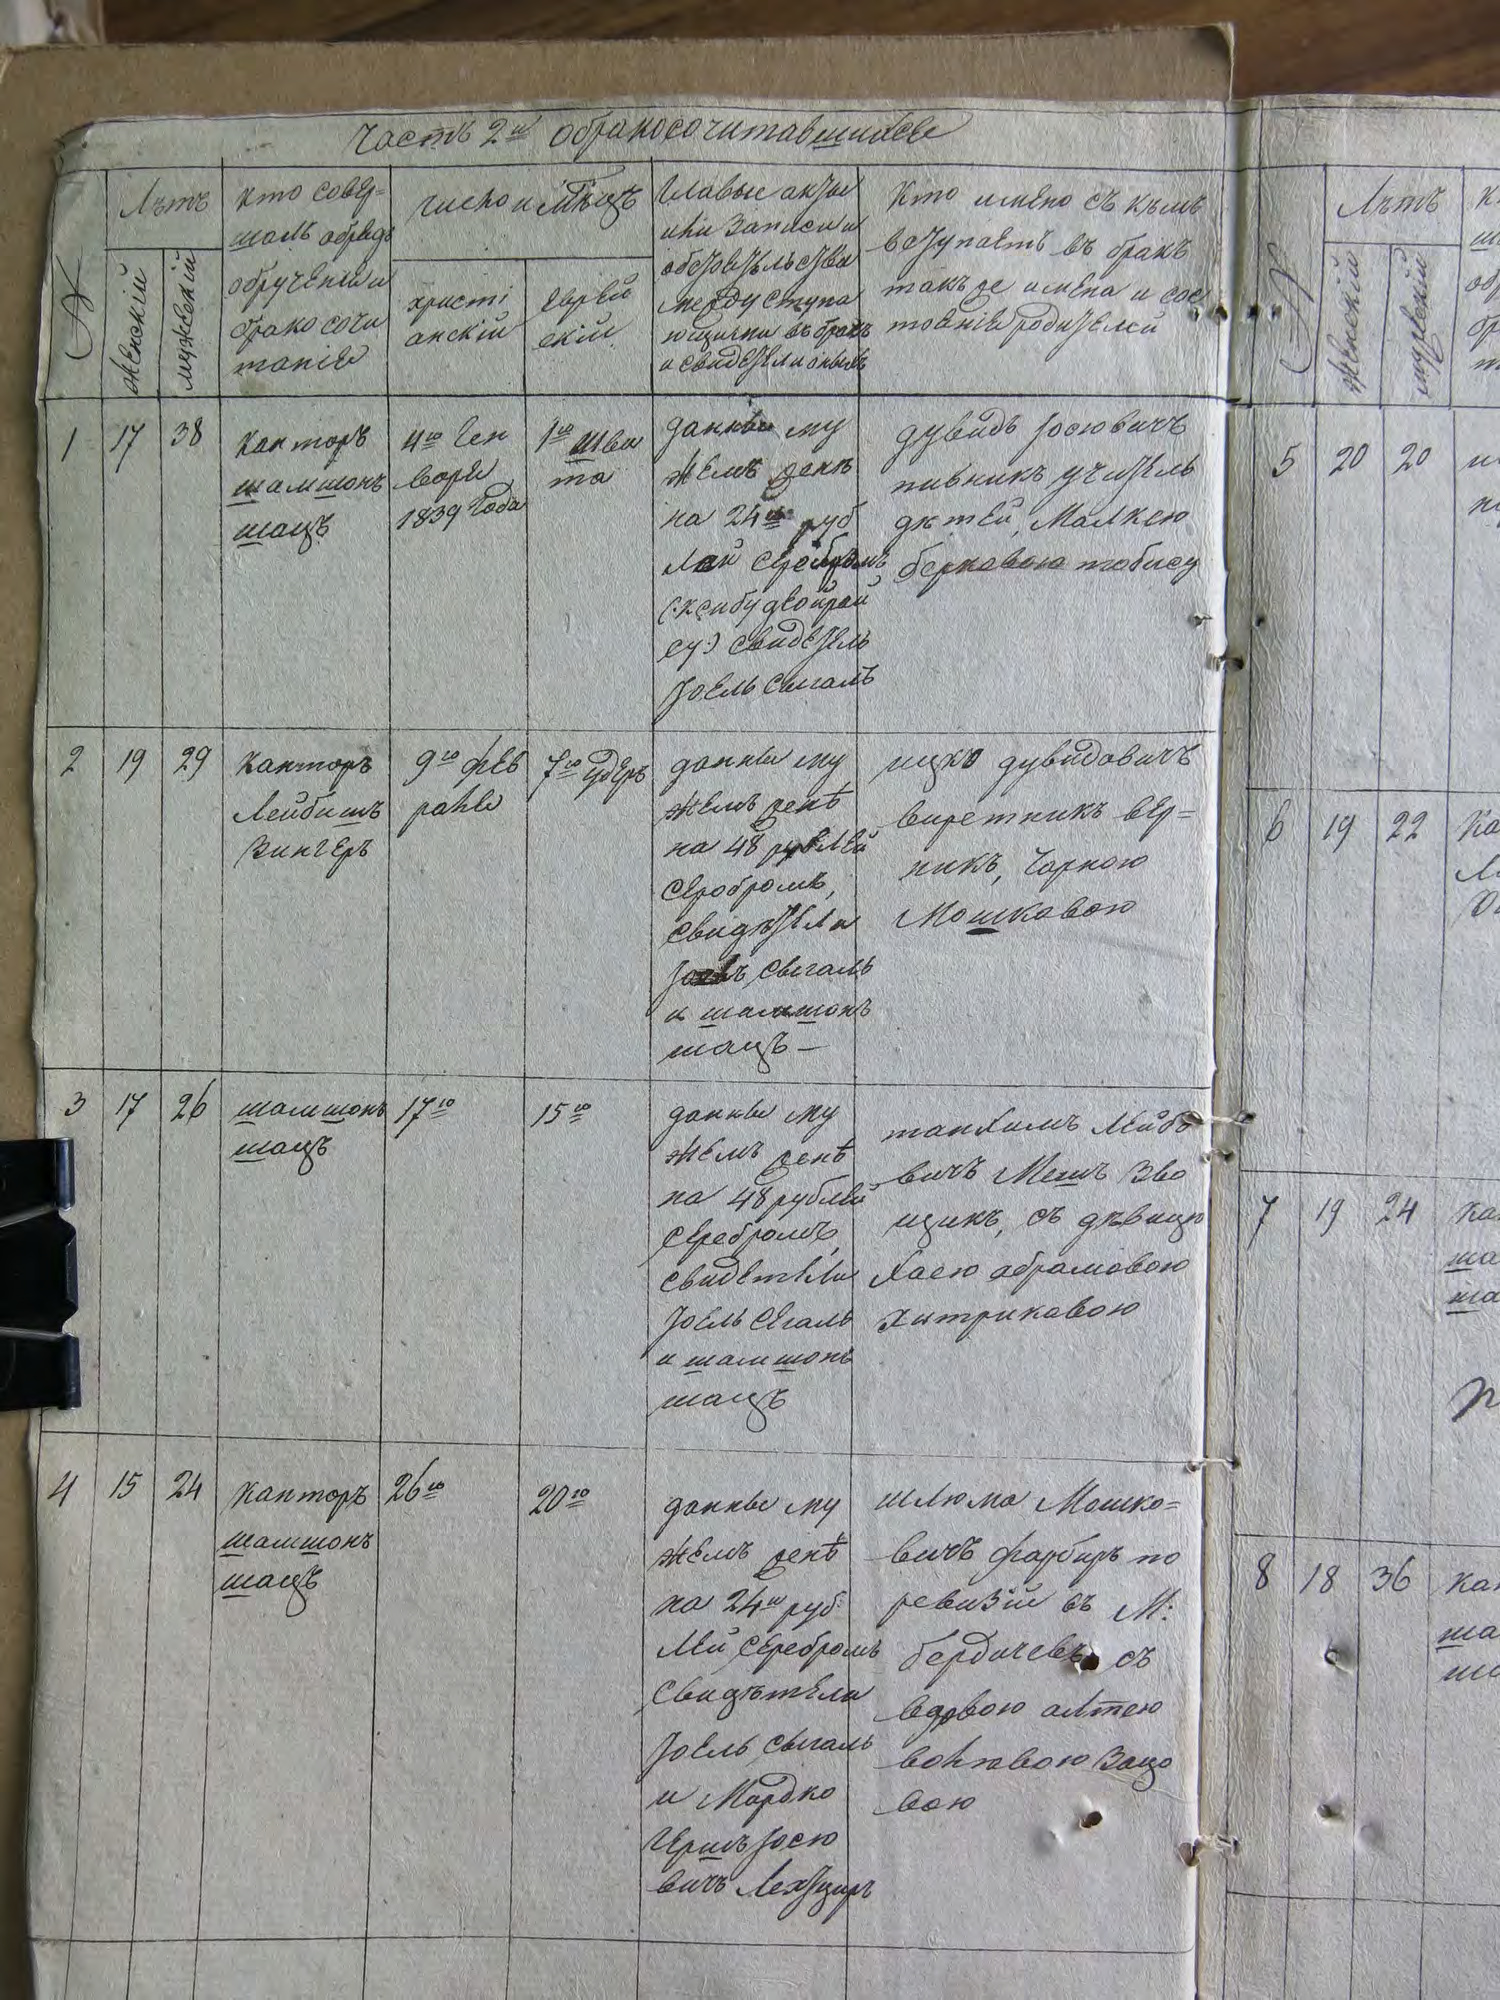 Часть 2ш обракосочитавшихсе
№
Лѣтъ
женскій
мужескій
кто совер=
шалъ обрядъ
обрученыи
бракосочи
таніе
число и мѣсецъ
христі
анскій
еврей
скій
Главые акты
или записи и
обезательства
между ступа
ющими въ бракъ
и свидетели оныхъ
Кто имено съ кемъ
вступаетъ въ бракъ
такъ же имена и сос
тоеніе родителей
1
17
38
Канторъ
шамшонъ
шацъ
4го Ген
варе
1839 Года
1го шва
та
данные му
жемъ жене
на 24ш руб
лей серебромъ
свидетель
Іоель сегаль
Дувидъ Іосювичъ
пивникъ учитель
детей, Малкею
берковою тобису
2
19
29
Канторъ
Лейбишъ
Зингеръ
9го фев
рале
7го Удеръ
данные му
жемъ женѣ
на 48 рублей
серебромъ,
свидѣтели
сегаль
и шамшонъ
шацъ —
ицко дувидовичъ
виретникъ вер=
никъ, Чарною
Мошковою
3
17
26
шамшонъ
шацъ
17го
15го
данные му
жемъ женѣ
на 48 рублей
серебромъ,
свидетели
Іоель сегаль
и шамшонъ
шацъ
танхимъ лейбо
вичъ Мешъ Зво
щикъ, съ дѣвицю
хаею абрамовою
хитриковою
4
15
24
Канторъ
шамшонъ
шацъ
26го
20го
данные му
жемъ женѣ
на 24ш руб
лей серебромъ
свидѣтели
Іоель сегаль
и Мордко
Гершъ Іосю
вичъ Лехтциръ
шлюма Мошко=
вичъ фарбиръ по
ревизіи въ М:
бердичевъ съ
вдовою алтею
волховою Зацо
вою
№
Лѣтъ
женскій
мужескій
5
20
20
6
19
22
7
19
24
8
18
36